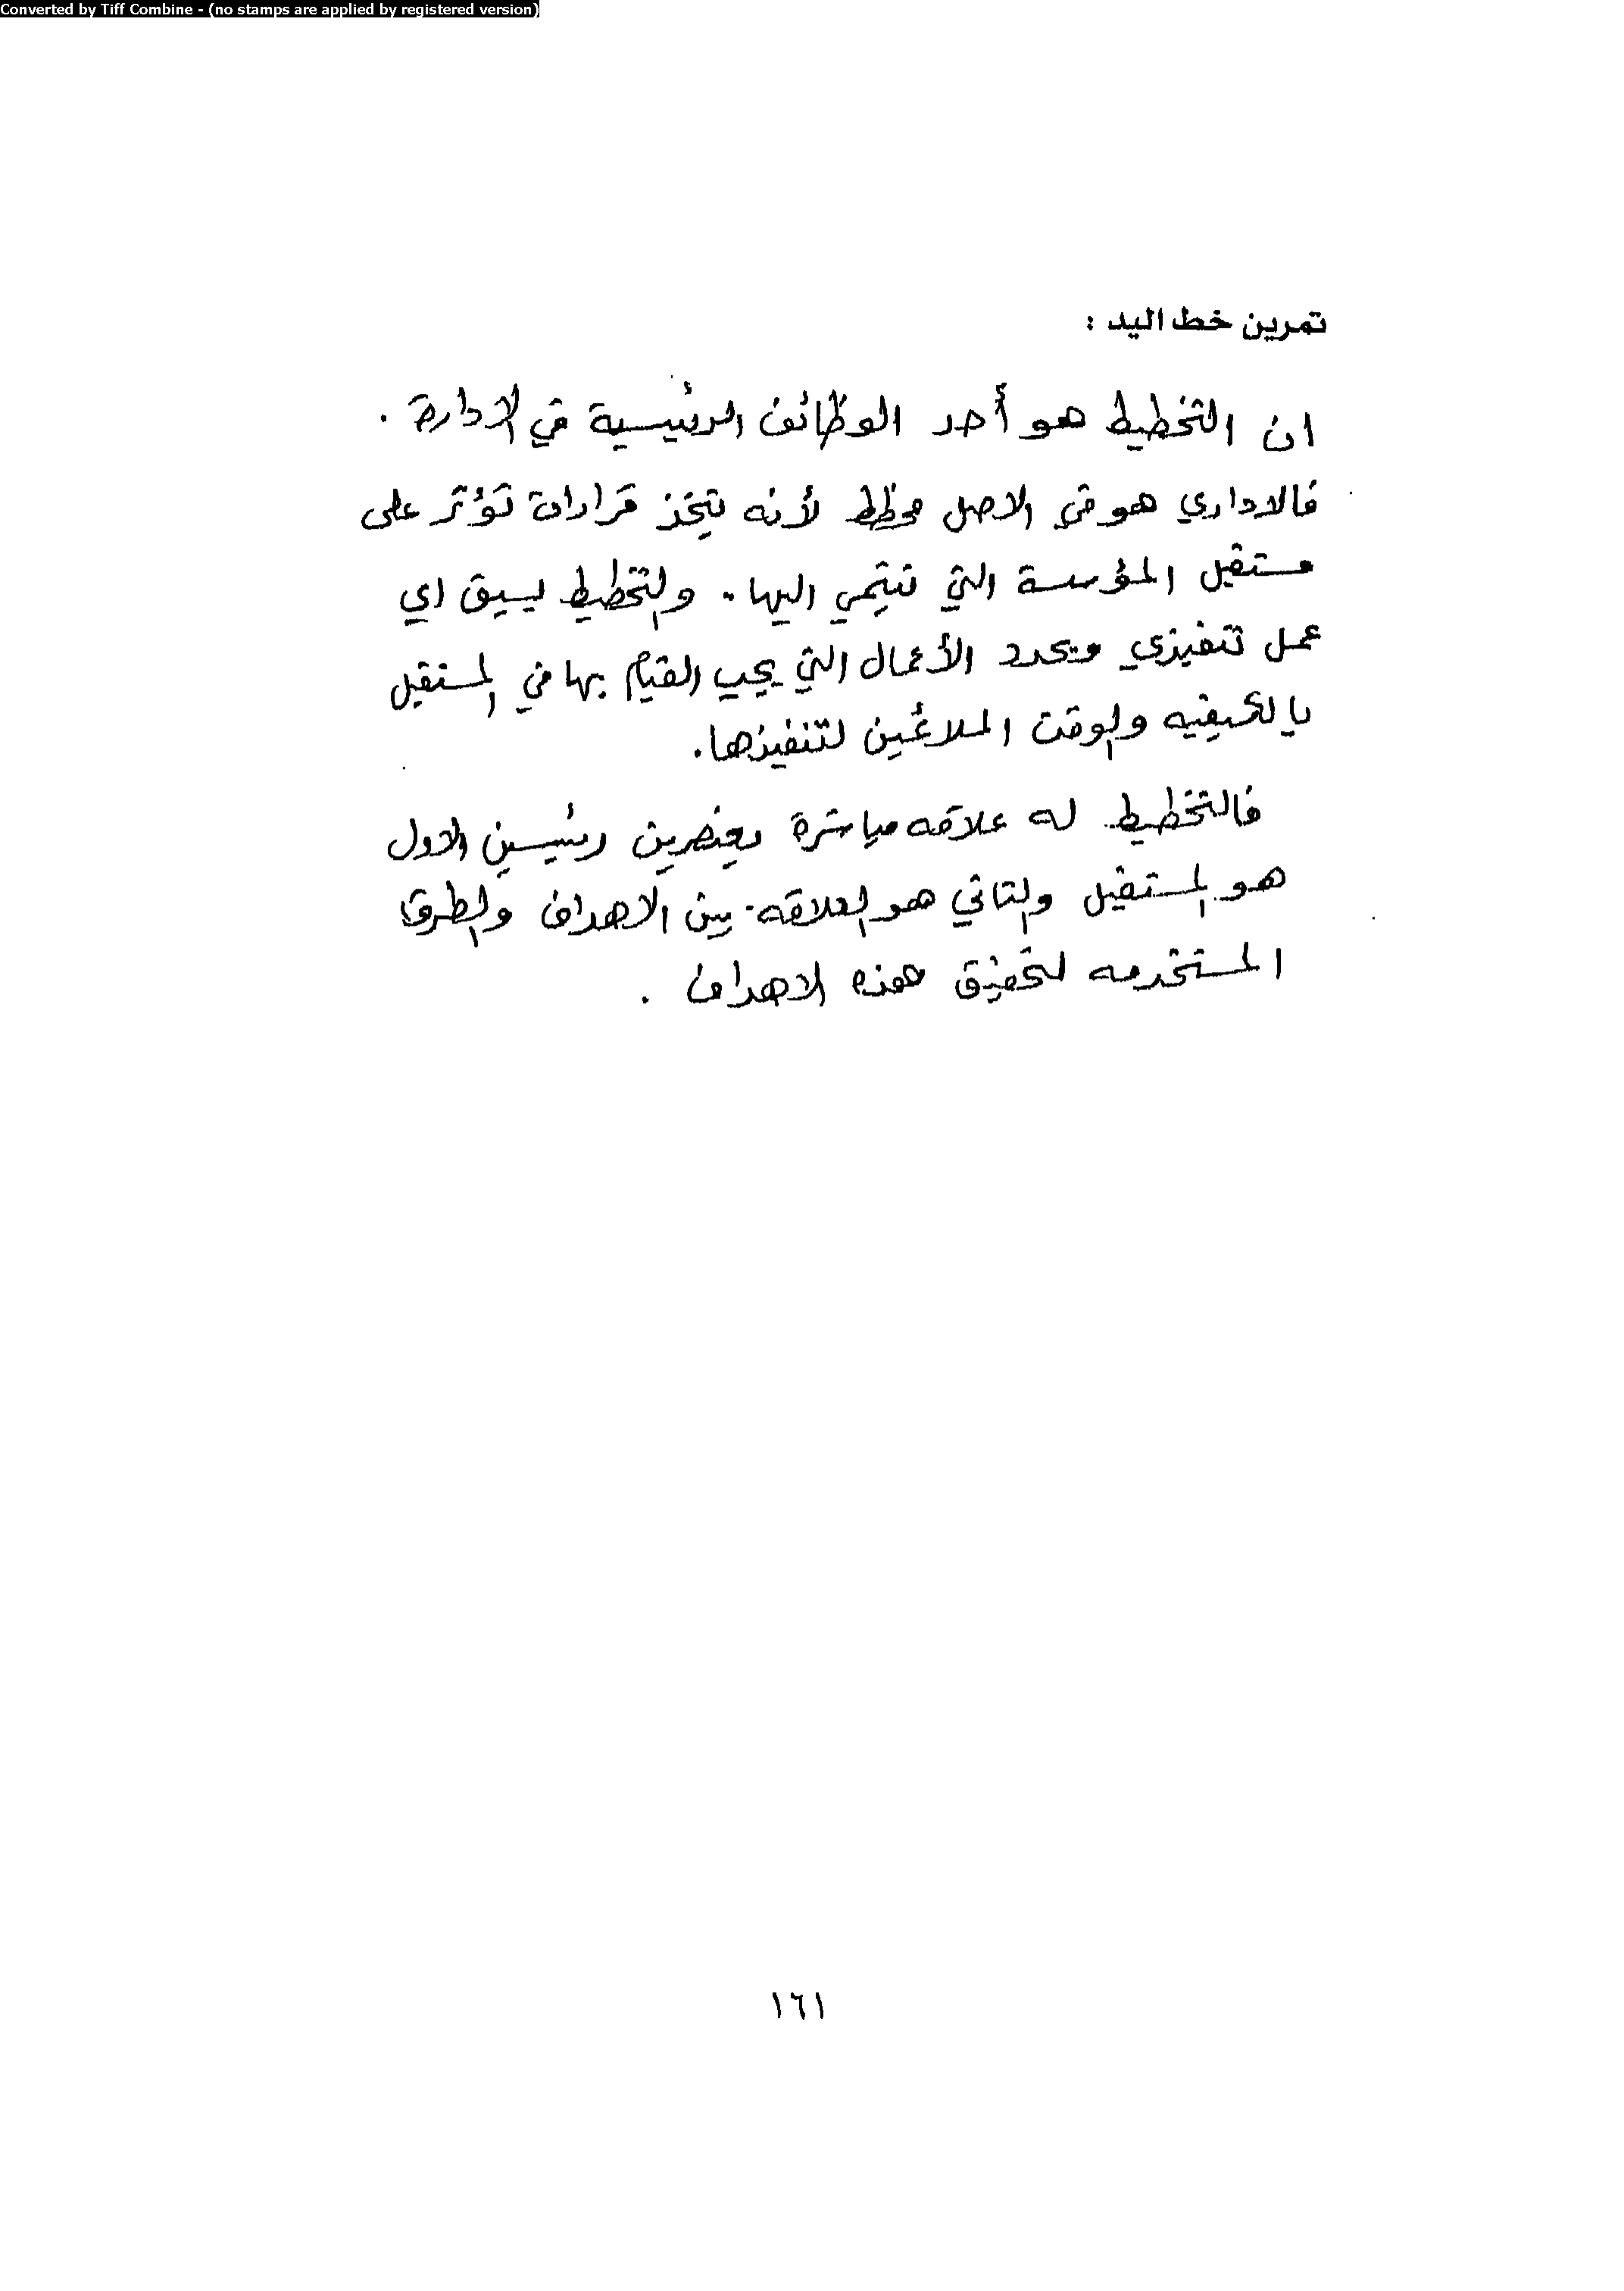 Converted by Tiff Combine - (no stamps are applied by registered version)
تمرين خط اليد :
ان التخطيط هو أحد الوظائف الرئيسية في الادارة .
فالاداري هو في الاصل مخطط لأنه يتخذ قرارات تؤثر على
مستقبل المؤسسة التي ينتمي اليها . والتخطيط يسبق اي
عمل تنفيذي ويحدد الأعمال التي يجب القيام بها في المستقبل
بالكيفيه والوقت الملائمين لتنفيذها .
فالتخطيط له علاقه مباشرة بعنصرين رئيسين الاول
هو المستقبل والثاني هو العلاقه بين الاهداف والطرق
المستخدمه لتحقيق هذه الاهداف .
١٦١